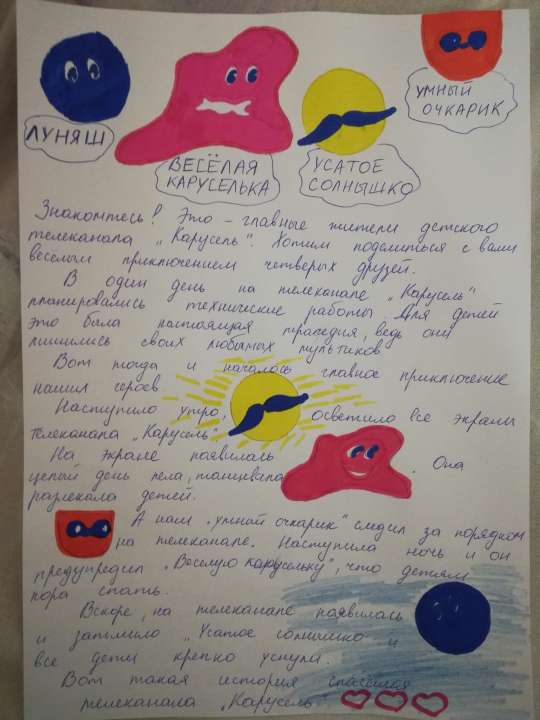 ЛУНЯШ
ВЕСЁЛАЯ
КАРУСЕЛЬКА
УСАТОЕ
СОЛНЫШКО
УМНЫЙ
ОЧКАРИК
Знакомтесь! Это - главные жители детского
телеканала „Карусель". Хотим поделиться с вами
веселым приключением четверых друзей.
В один день на телеканале „Карусель"
планировались технические работы. Для детей
это была настоящая трагедия, ведь они
лишились своих любимых мультиков
Вот тогда и началось главное приключение
наших героев.
Наступило утро, осветило все экраны
телеканала „Карусель"
На экране появилась . Она
целый день пела, танцевала
развлекала детей.
А наш „умный очкарик" следил за порядком
на телеканале. Наступила ночь и он
предупредил „Веселую карусельку", что детям
пора спать.
Вскоре, на телеканале появилась
и затмило „Усатое солнышко и
все дети крепко уснули.
Вот такая история спасения
телеканала „Карусель"